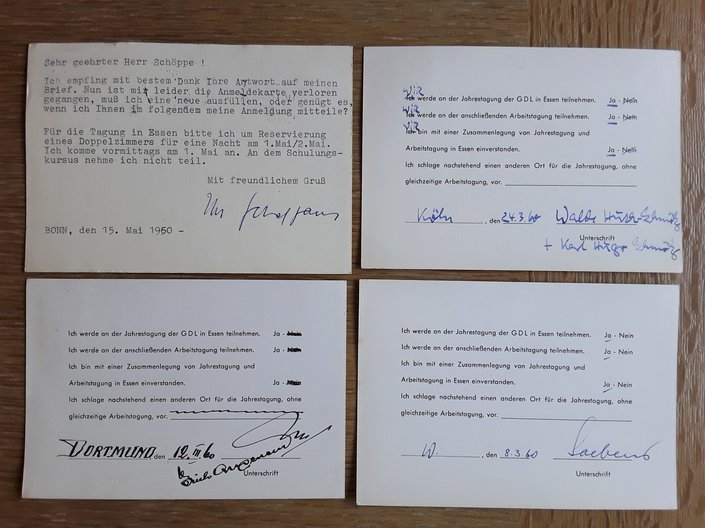 Sehr geehrter Herr Schöppe !
Ich empfing mit bestem Dank Ihre Antwort auf meinen
Brief. Nun ist mir leider die Anmeldekarte verloren
gegangen, muß ich eine neue ausfüllen, oder genügt es,
wenn ich Ihnen im folgendem meine Anmeldung mitteile?
Für die Tagung in Essen bitte ich um Reservierung
eines Doppelzimmers für eine Nacht am 1.Mai/2.Mai.
Ich komme vormittags am 1. Mai an. An dem Schulungs-
kursus nehme ich nicht teil.
Mit freundlichem Gruß
BONN, den 15. Mai 1960 -
Wir
Ich werde an der Jahrestagung der GDL in Essen teilnehmen. Ja - Nein
Wir
Ich werde an der anschließenden Arbeitstagung teilnehmen. Ja - Nein
Wir
Ich bin mit einer Zusammenlegung von Jahrestagung und
Arbeitstagung in Essen einverstanden. Ja - Nein
Ich schlage nachstehend einen anderen Ort für die Jahrestagung, ohne
gleichzeitige Arbeitstagung, vor.
Köln, den 24.3.60
Unterschrift
+ Karl Hugo
Ich werde an der Jahrestagung der GDL in Essen teilnehmen. Ja - Nein
Ich werde an der anschließenden Arbeitstagung teilnehmen. Ja - Nein
Ich bin mit einer Zusammenlegung von Jahrestagung und
Arbeitstagung in Essen einverstanden. Ja - Nein
Ich schlage nachstehend einen anderen Ort für die Jahrestagung, ohne
gleichzeitige Arbeitstagung, vor.
DORTMUND, den 12. III 60
Erich
Unterschrift
Ich werde an der Jahrestagung der GDL in Essen teilnehmen. Ja - Nein
Ich werde an der anschließenden Arbeitstagung teilnehmen. Ja - Nein
Ich bin mit einer Zusammenlegung von Jahrestagung und
Arbeitstagung in Essen einverstanden. Ja - Nein
Ich schlage nachstehend einen anderen Ort für die Jahrestagung, ohne
gleichzeitige Arbeitstagung, vor.
W. , den 8.3.60
Unterschrift